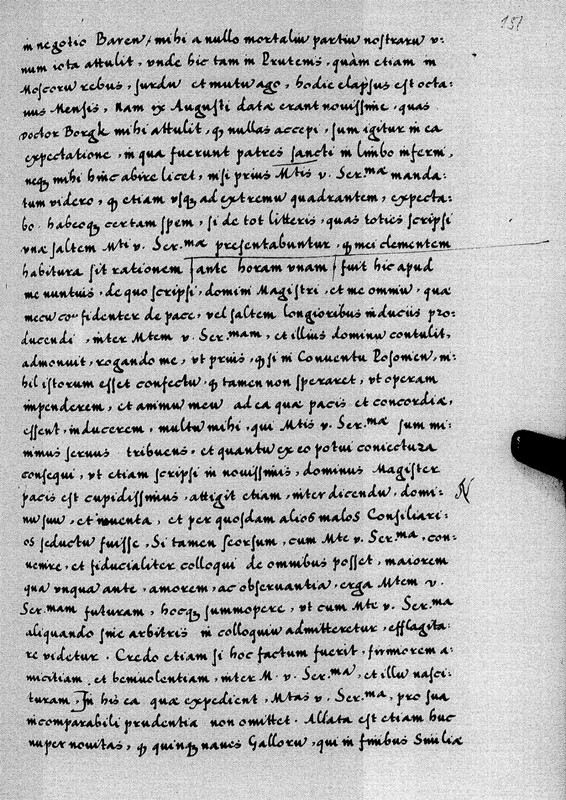 157
in negotio Baren, mihi a nullo mortaliū partiū nostrarū v:
num iota attulit, vnde hic tam in Prutenis, quàm etiam in
Moscorū rebus, surdū et mutū ago, hodie elapsus est octa:
uus Mensis, Nam ix Augusti datæ erant nouissime, quas
Doctor Borgk mihi attulit, q nullas accepi, sum igitur in ea
expectatione, in qua fuerunt patres sancti in limbo inferni,
neq mihi hinc abire licet, nisi prius Mtis v. Ser.mæ manda:
tum videro, q etiam vsq ad extremū quadrantem, expecta:
bo. habeoq certam spem, si de tot litteris, quas toties scripsi
vnæ saltem Mti v. Ser.mæ presentabuntur, q mei clementem
habitura sit rationem ante horam vnam fuit hic apud
me nuntius, de quo scripsi, domini Magistri, et me omniū, quæ
mecū confidenter de pace, vel saltem longioribus induciis pro:
ducendi, inter Mtem v. Ser.mam, et illius dominū contulit,
admonuit, rogando me, vt prius, q si in Conuentu Posonien, ni:
hil istorum esset confectū q tamen non speraret, vt operam
impenderem, et animū meū ad ea quæ pacis et concordiæ,
essent, inducerem, multū mihi, qui Mtis v. Ser.mæ sum mi:
nimus seruus tribuens, et quantū ex eo potui coniectura
consequi, vt etiam scripsi in nouissimis, dominus Magister
pacis est cupidissimus, attigit etiam, inter dicendū, domi: N
nū suū, et iuuenta, et per quosdam alios malos Consiliari:
os seductū fuisse, Si tamen seorsum, cum Mte v. Ser.ma, con:
uenire, et fiducialiter colloqui de omnibus posset, maiorem
qua vnqua ante, amorem, ac obseruantia, erga Mtem v.
Ser.mam futuram, hocq summopere, vt cum Mte v. Ser.ma
aliquando sine arbitris in colloquiū admitteretur, efflagita:
re videtur. Credo etiam si hoc factum fuerit, firmiorem a:
micitiam, et beniuolentiam, inter M. v. Ser.ma, et illū nasci:
turam, In his ea quæ expedient, Mtas v. Ser.ma, pro sua
incomparabili prudentia non omittet. Allata est etiam huc
nuper nouitas, q quinq naues Gallorū, qui in finibus Siuiliæ